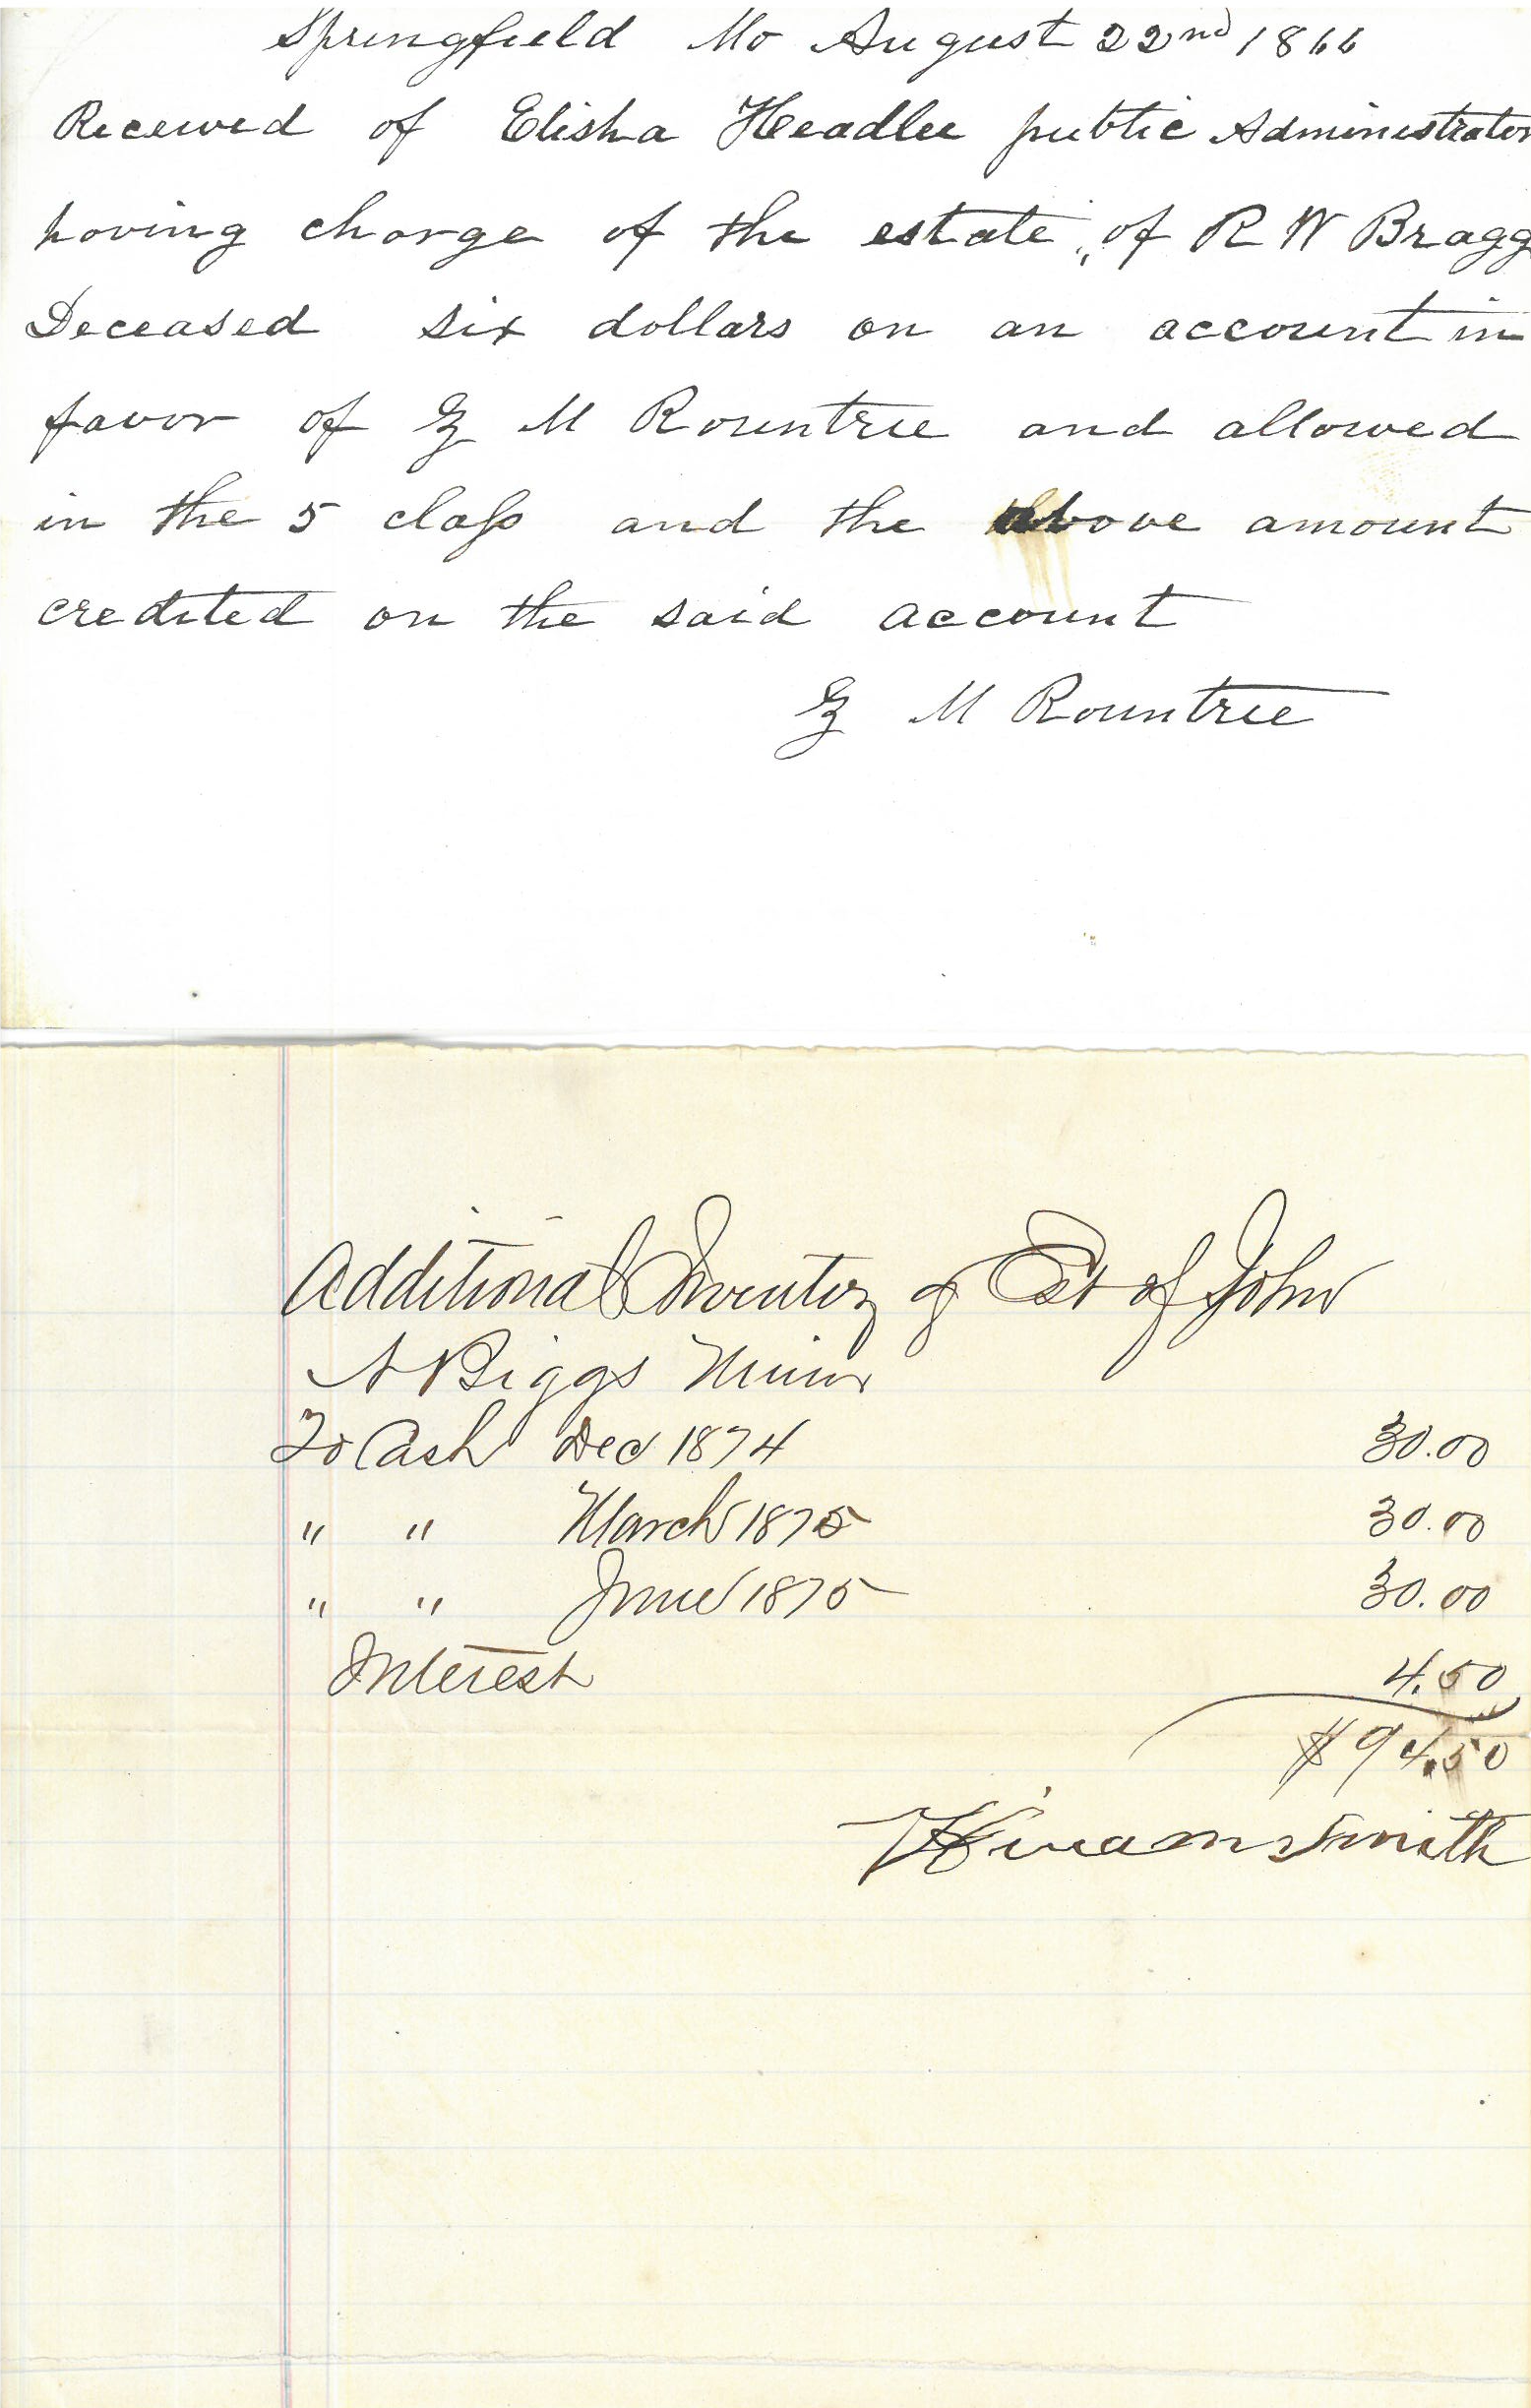 Springfield Mo August 22nd 1866
Received of Elisha Headlee public Administrator
having charge of the estate of R W Bragg
Deceased six dollars on an account in
favor of Z M Rountree and allowed
in the 5 class and the above amount
credited on the said account
Z M Rountree
Additional Inventory of Est of John
A Biggs Minor
To Cash Dec 1874 30.00
" " March 1875 30.00
" " June 1875 30.00
Interest 4.50
$94.50
Hiram Smith